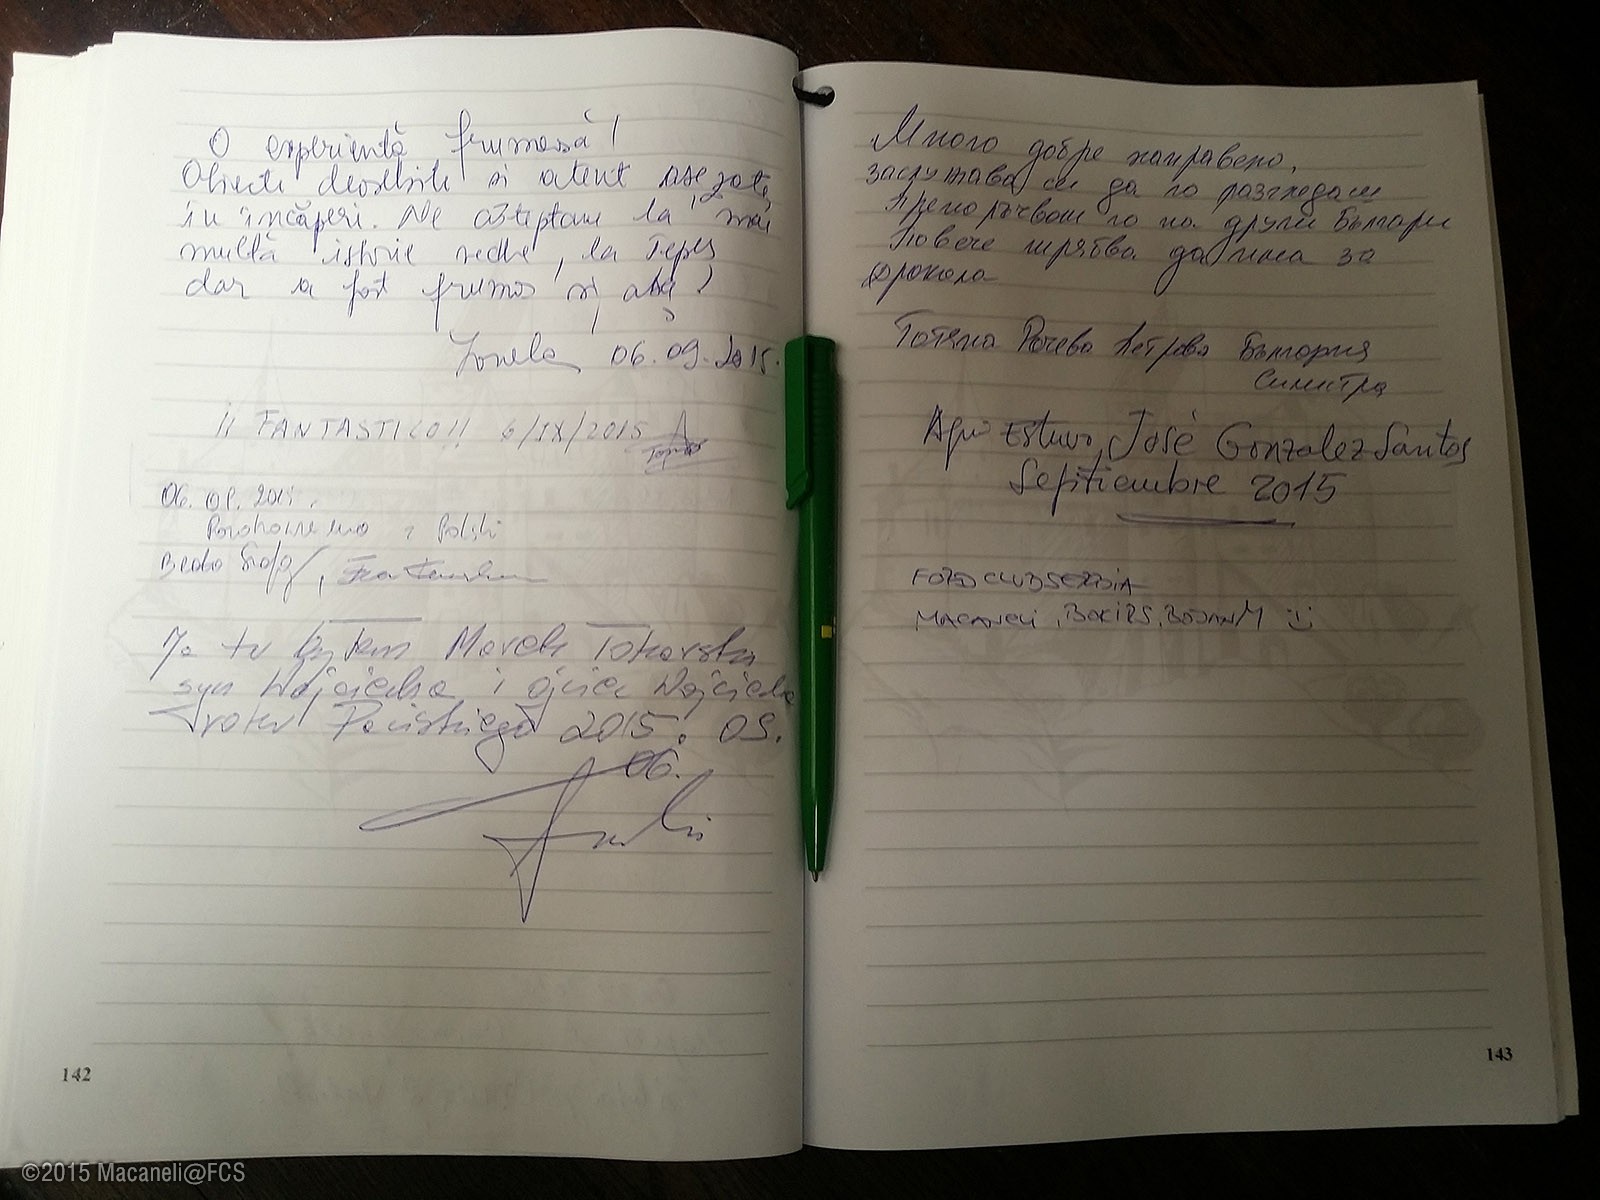 O experientă frumoasă!
Obiecte deosebite si atent asezate
în încăperi. Ne asteptam la mai
multă istorie veche, la Tepes
dar a fost frumos și așa!
Ionela 06.09.2015.
¡¡ FANTASTICO!! 6/IX/2015
06. 09. 2015.
Pozdrowienia z Polski
Beata
Ja tu byłem Marek Tokarski
syn Wojciecha i ojciec Wojciecha
2015. 09.
06.
142
Много добре направено,
заслужава си да го разгледаш
Препоръчвам го на други Българи
Повече трябва да пиша за
Дракола
Татяна Рачева Петрова България
Aqui Estuvo, José Gonzalez Santos
Septiembre 2015
FOTO CLUB SERBIA
MACANELI, BOKIRS, BOJANM :)
143
©2015 Macaneli@FCS